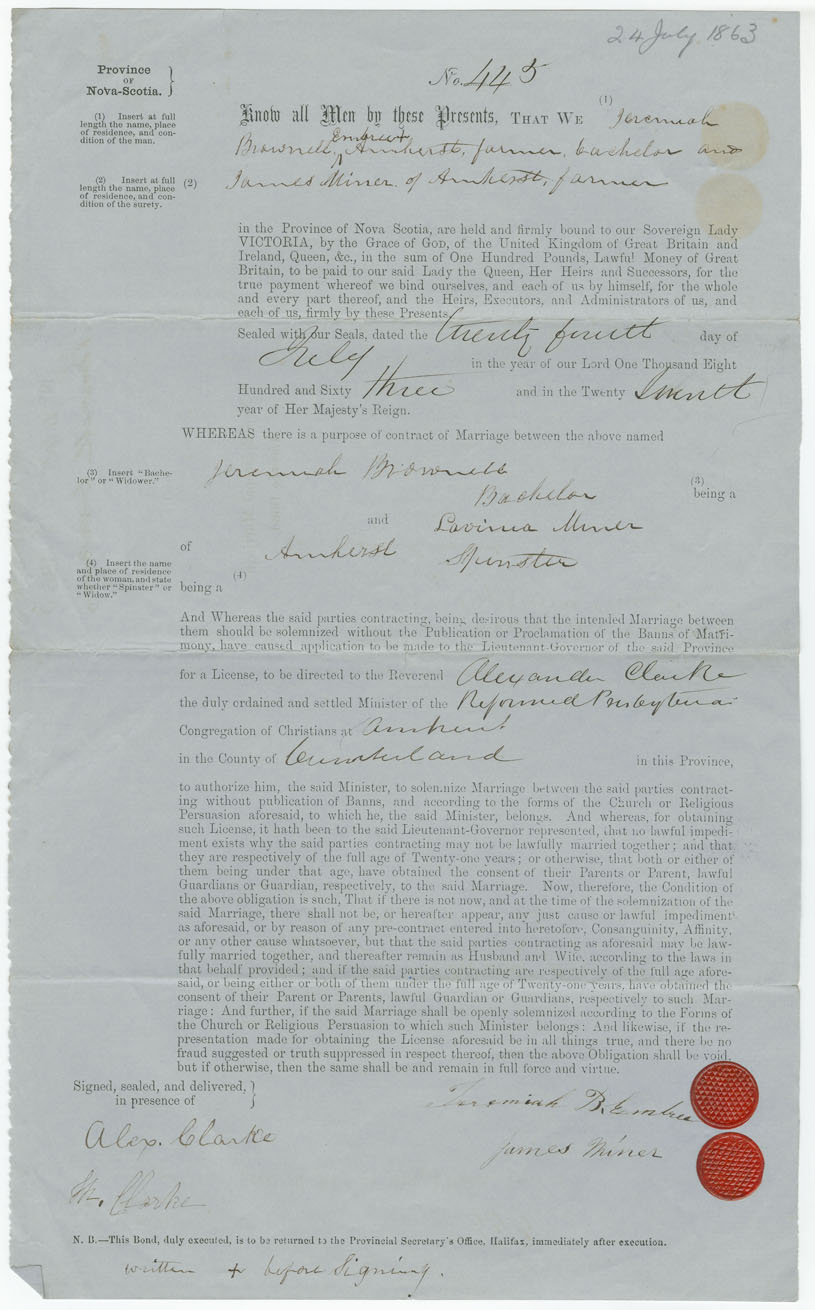 24 July 1863
Province
OF
Nova-Scotia.
No. 445
(1) Insert at full
length the name, place
of residence, and con-
dition of the man.
Know all Men by these Presents, THAT WE (1) Jeremiah
Embree +
Brownell, ^ Amherst, farmer, bachelor and
(2) Insert at full
length the name, place
of residence, and con-
dition of the surety.
(2) James Miner of Amherst, farmer
in the Province of Nova Scotia, are held and firmly bound to our Sovereign Lady
VICTORIA, by the Grace of GOD, of the United Kingdom of Great Britain and
Ireland, Queen, &c., in the sum of One Hundred Pounds, Lawful Money of Great
Britain, to be paid to our said Lady the Queen, Her Heirs and Successors, for the
true payment whereof we bind ourselves, and each of us by himself, for the whole
and every part thereof, and the Heirs, Executors, and Administrators of us, and
each of us, firmly by these Presents.
Sealed with our Seals, dated the twenty fourth day of
July in the year of our Lord One Thousand Eight
Hundred and Sixty three and in the Twenty Seventh
year of Her Majesty's Reign.
WHEREAS there is a purpose of contract of Marriage between the above named
(3) Insert "Bache-
lor" or "Widower."
Jeremiah Brownell
Bachelor (3) being a
and Lavinia Miner
of Amherst Spinster
(4) Insert the name
and place of residence
of the woman, and state
whether "Spinster" or
"Widow."
(4)
being a
And Whereas the said parties contracting, being desirous that the intended Marriage between
them should be solemnized without the Publication or Proclamation of the Banns of Matri-
mony, have caused application to be made to the Lieutenant-Governor of the said Province
for a License, to be directed to the Reverend Alexander Clarke
the duly ordained and settled Minister of the Reformed Presbyterian
Congregation of Christians at Amherst
in the County of Cumberland in this Province,
to authorize him, the said Minister, to solemnize Marriage between the said parties contract-
ing without publication of Banns, and according to the forms of the Church or Religious
Persuasion aforesaid, to which he, the said Minister, belongs. And whereas, for obtaining
such License, it hath been to the said Lieutenant-Governor represented, that no lawful impedi-
ment exists why the said parties contracting may not be lawfully married together; and that
they are respectively of the full age of Twenty-one years; or otherwise, that both or either of
them being under that age, have obtained the consent of their Parents or Parent, lawful
Guardians or Guardian, respectively, to the said Marriage. Now, therefore, the Condition of
the above obligation is such, That if there is not now, and at the time of the solemnization of the
said Marriage, there shall not be, or hereafter appear, any just cause or lawful impediment
as aforesaid, or by reason of any pre-contract entered into heretofore, Consanguinity, Affinity,
or any other cause whatsoever, but that the said parties contracting as aforesaid may be law-
fully married together, and thereafter remain as Husband and Wife, according to the laws in
that behalf provided; and if the said parties contracting are respectively of the full age afore-
said, or being either or both of them under the full age of Twenty-one years, have obtained the
consent of their Parent or Parents, lawful Guardian or Guardians, respectively to such Mar-
riage: And further, if the said Marriage shall be openly solemnized according to the Forms of
the Church or Religious Persuasion to which such Minister belongs: And likewise, if the re-
presentation made for obtaining the License aforesaid be in all things true, and there be no
fraud suggested or truth suppressed in respect thereof, then the above Obligation shall be void,
but if otherwise, then the same shall be and remain in full force and virtue.
Signed, sealed, and delivered,
in presence of
Jeremiah B. Embree
Alex. Clarke
James Miner
Wm. Clarke
N. B.—This Bond, duly executed, is to be returned to the Provincial Secretary's Office, Halifax, immediately after execution.
written + before signing.